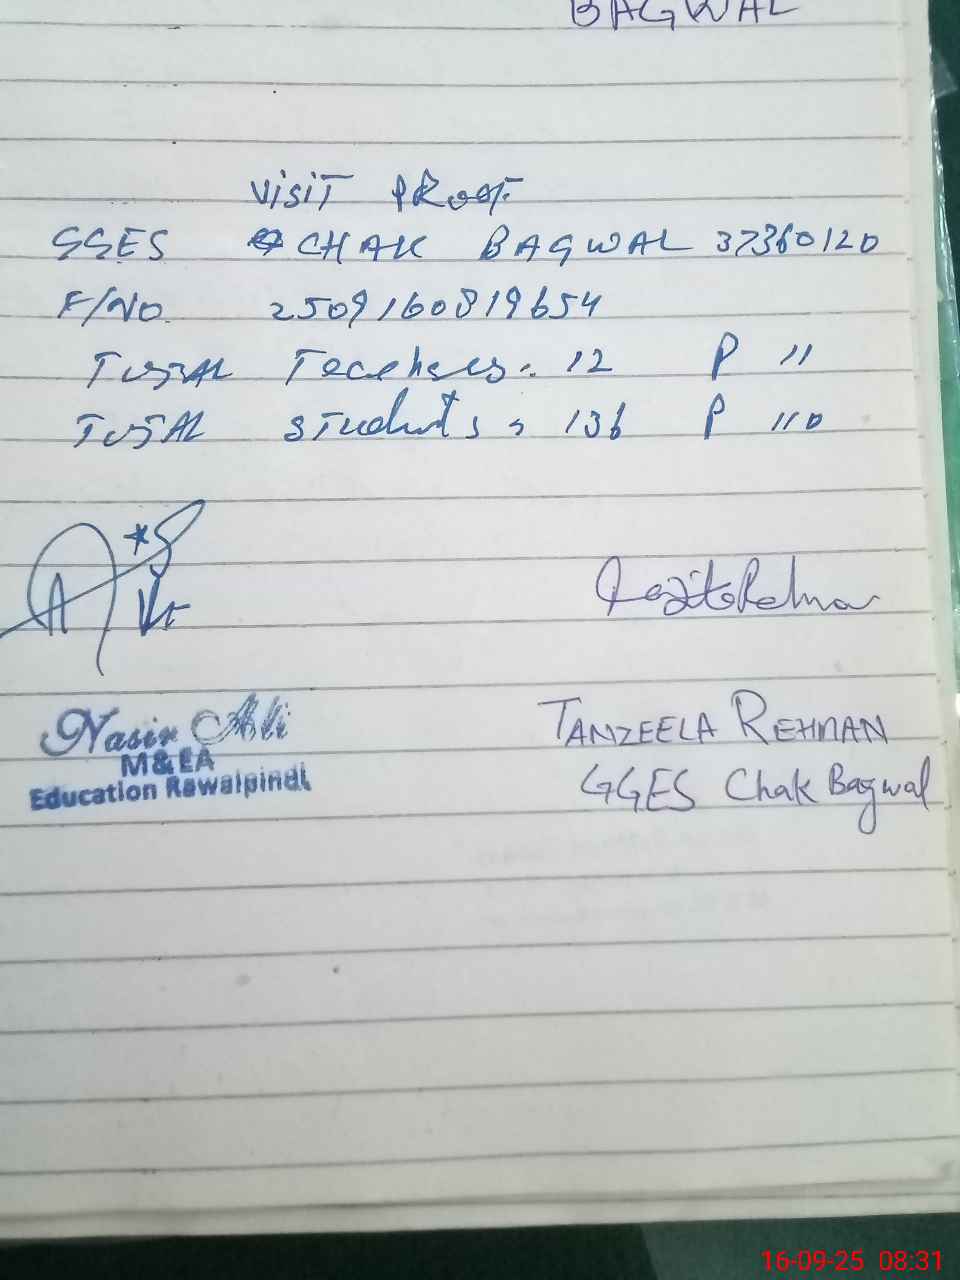 BAGWAL
VISIT PROOF
GGES CHAK BAGWAL 37360120
F/NO 2509160819654
TOTAL Teachers: 12 P 11
TOTAL Students, 136 P 110
Nasir Ali
M&EA
Education Rawalpindi
TANZEELA REHMAN
GGES Chak Bagwal
16-09-25 08:31